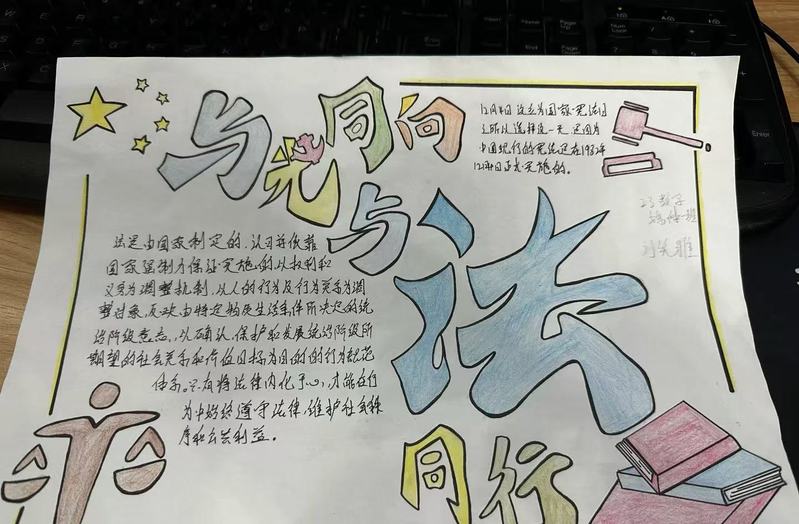 与光同向
与法
同行
12月4日设立为国家宪法日
之所以选择这一天,是因为
中国现行的宪法是在1982年
12月4日正式实施的。
法是由国家制定的、认可并依靠
国家强制力保证实施的以权利和
义务为调整机制,以人的行为及行为关系为调
整对象,反映由特定物质生活条件所决定的统
治阶级意志,以确认、保护和发展统治阶级所
期望的社会关系和价值目标为目的的行为规范
体系。只有将法律内化于心,才能在行
为中始终遵守法律,维护社会秩
序和公共利益。
Enter